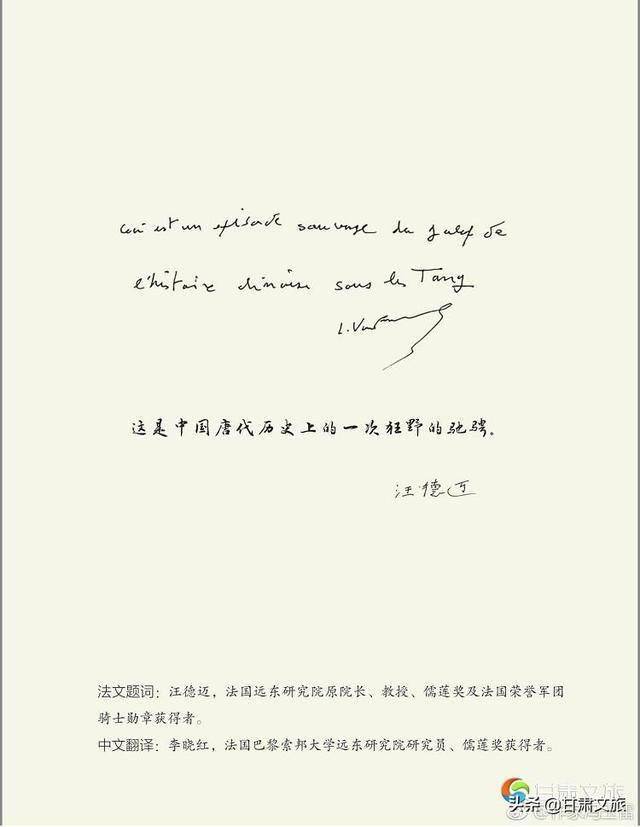 Ceci est un épisode sauvage du galop de
l'histoire chinoise sous les Tang
L. Van
这是中国唐代历史上的一次狂野的驰骋。
汪德迈
法文题词：汪德迈，法国远东研究院原院长、教授、儒莲奖及法国荣誉军团
骑士勋章获得者。
中文翻译：李晓红，法国巴黎索邦大学远东研究院研究员、儒莲奖获得者。
甘肃文旅
头条 @甘肃文旅